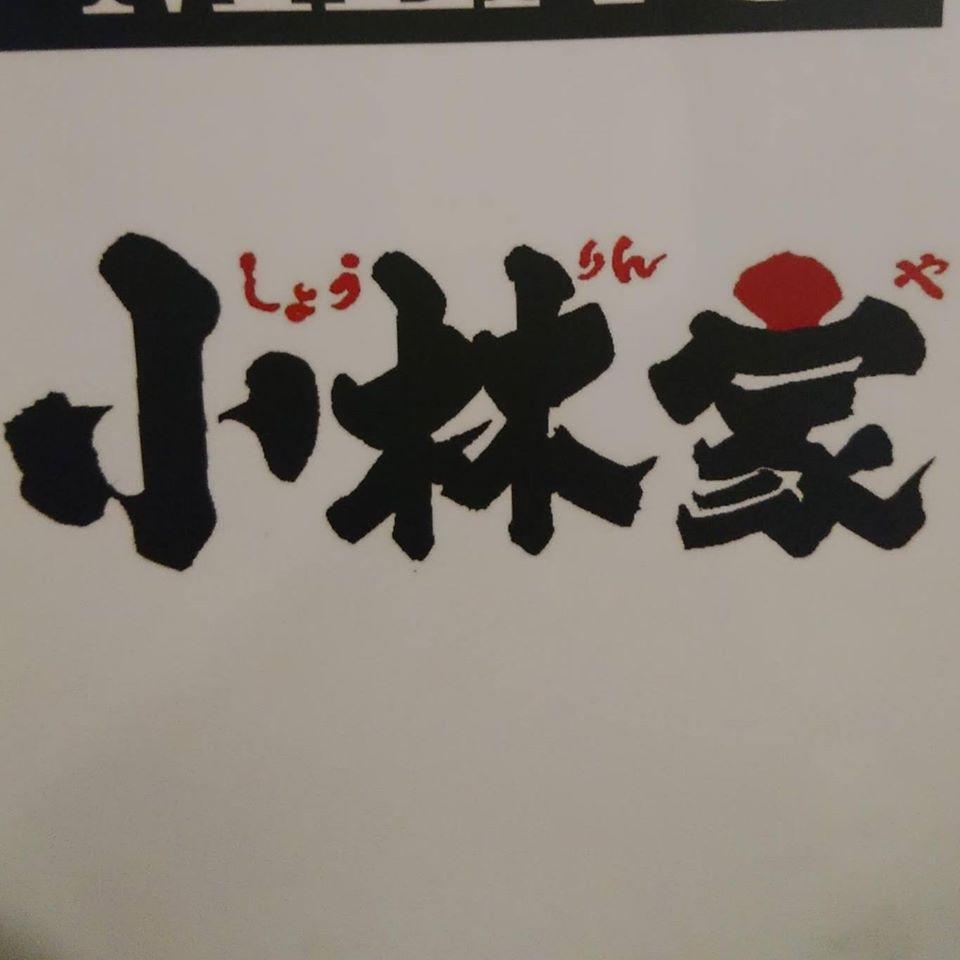 MENU
しょう りん や
小林家